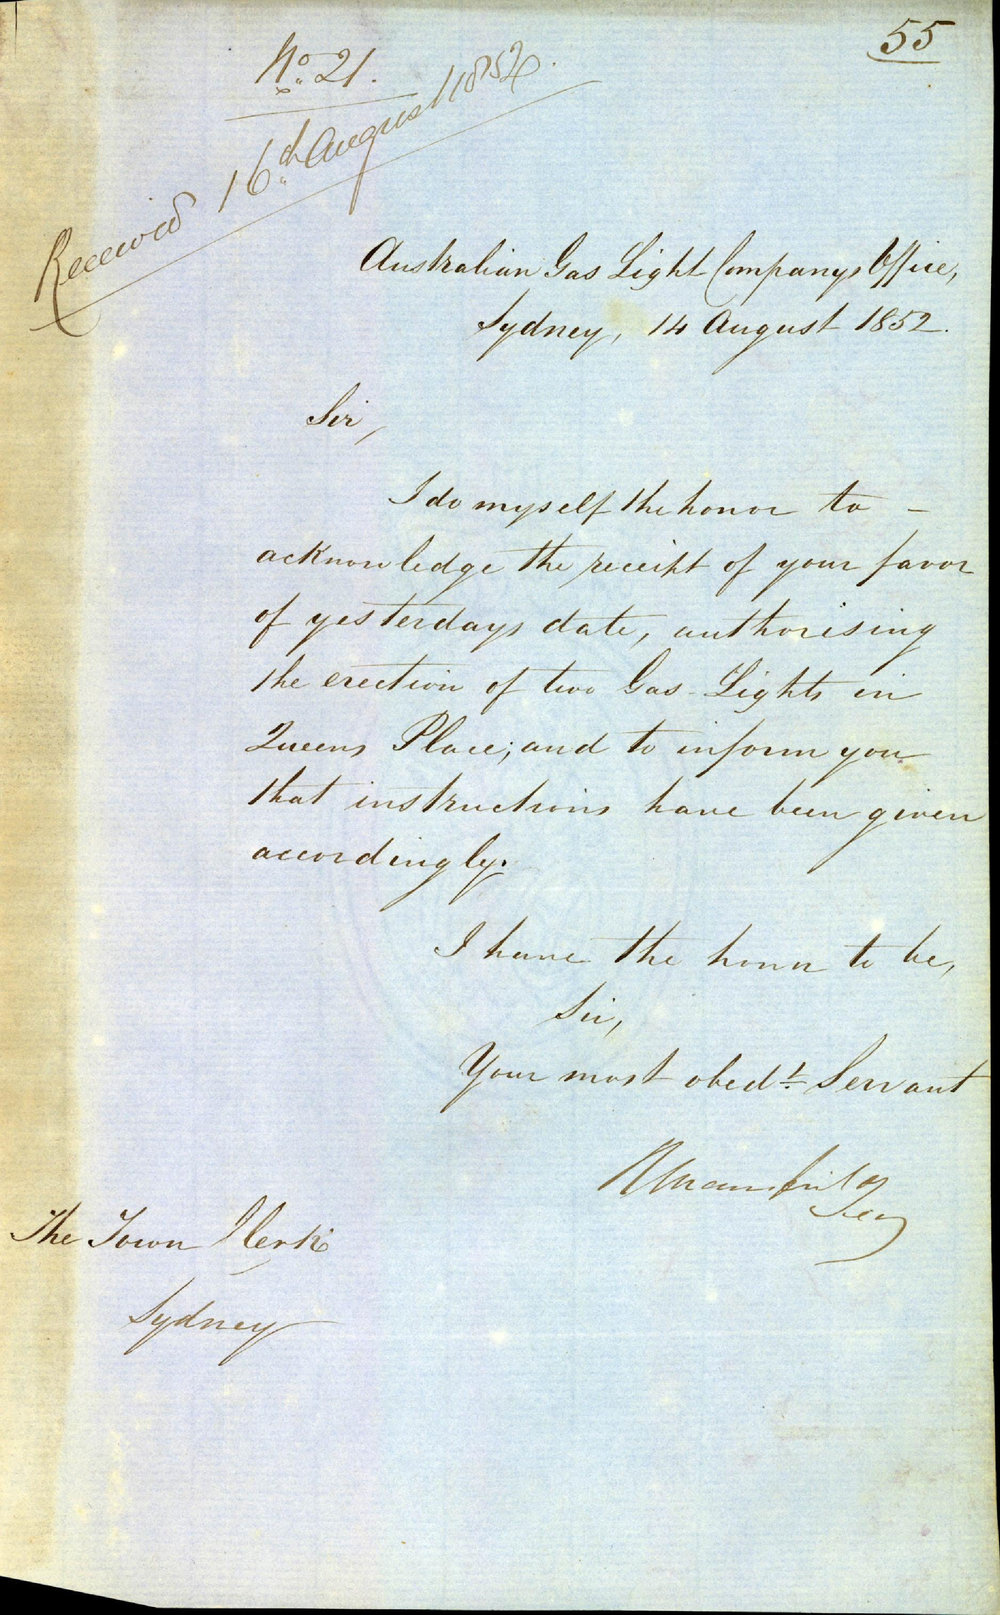 55
No. 21.
Received 16th August 1852.
Australian Gas Light Companys Office,
Sydney, 14 August 1852.
Sir,
I do myself the honor to –
acknowledge the receipt of your favor
of yesterdays date, authorising
the erection of two Gas-Lights in
Queens Place; and to inform you
that instructions have been given
accordingly.
I have the honor to be,
Sir,
Your most obedt. Servant
Secy
The Town Clerk
Sydney